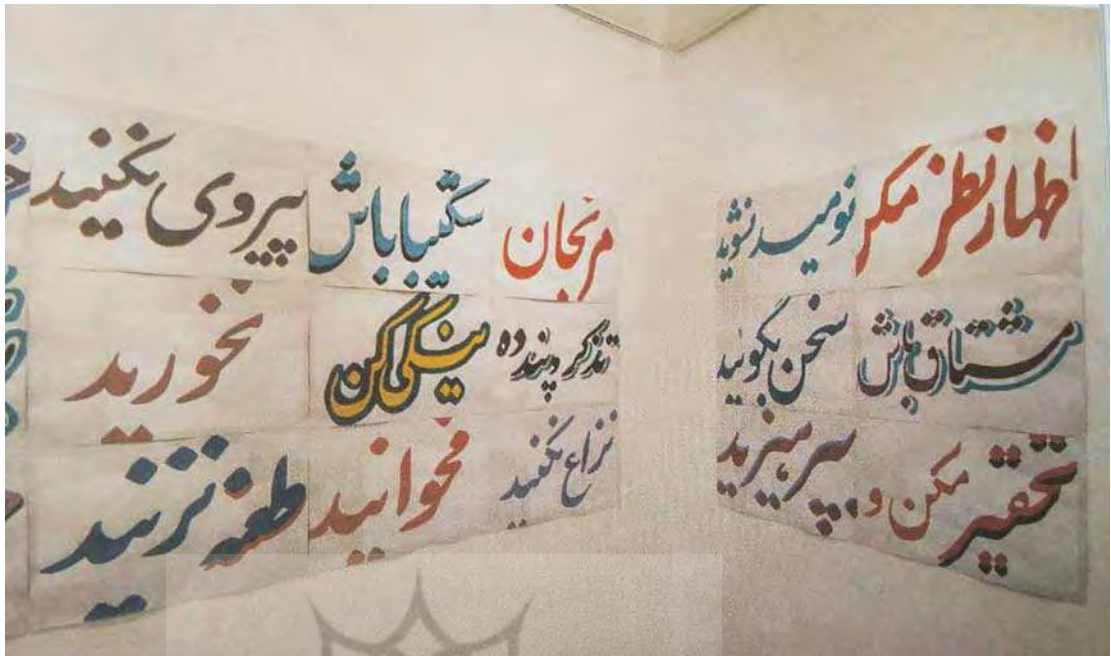 اظهار نظر مکن
نومید نشوید
مشتاق باش
سخن بگویید
تحقیر مکن و
بپرهیزید
مرنجان
شکیبا باش
پیروی نکنید
تذکر و پند ده
نیکی کن
نخورید
نزاع نکنید
نخوانید
طعنه نزنید